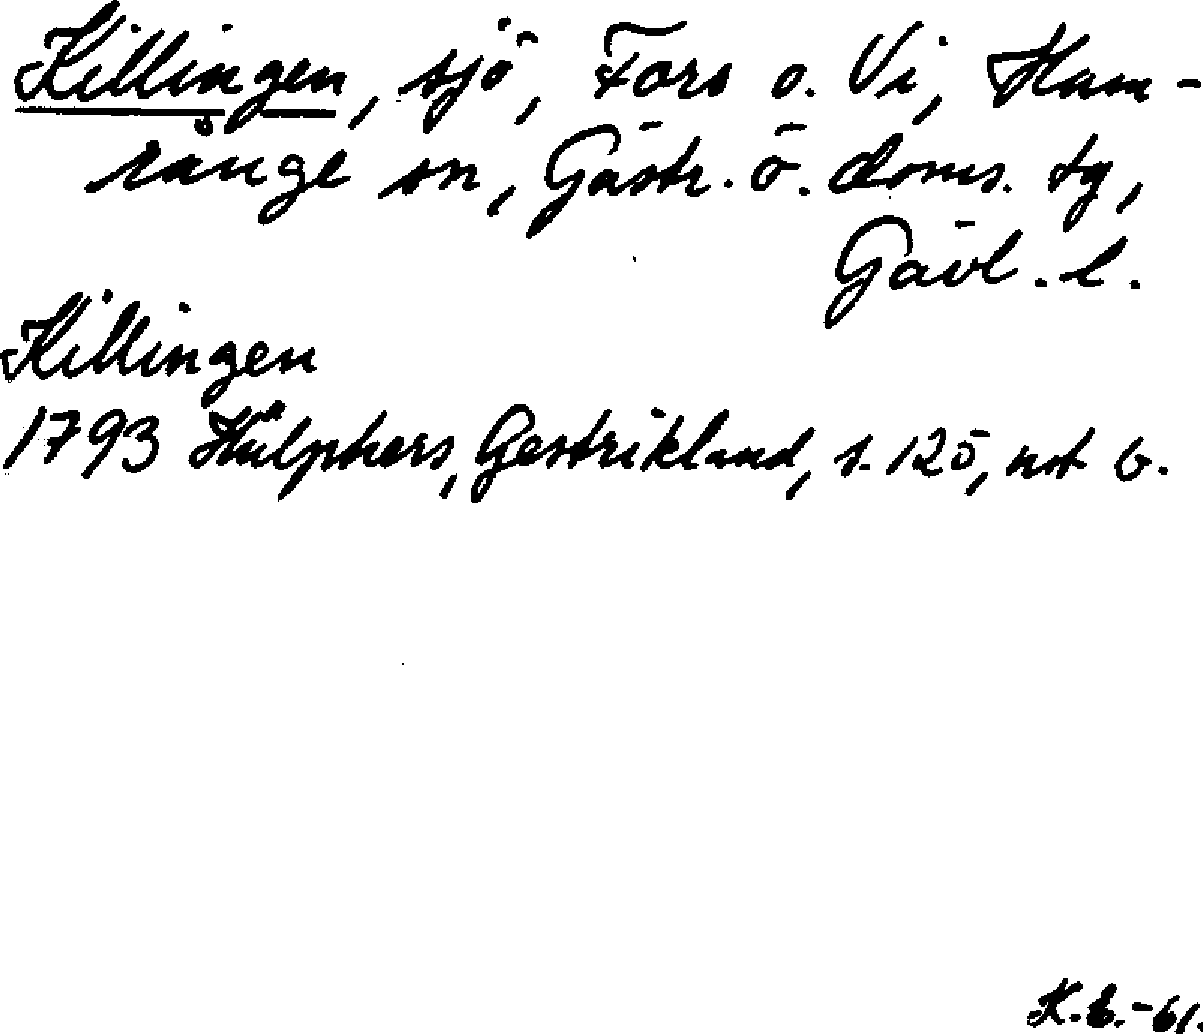 Killingen, sjö, Fors o. Vi, Ham-
rånge sn, Gästr. ö. doms. tg,
Gävl. l.
Killingen
1793 Hülphers, Gestrikland, s. 125, not b.
K.E.-61.